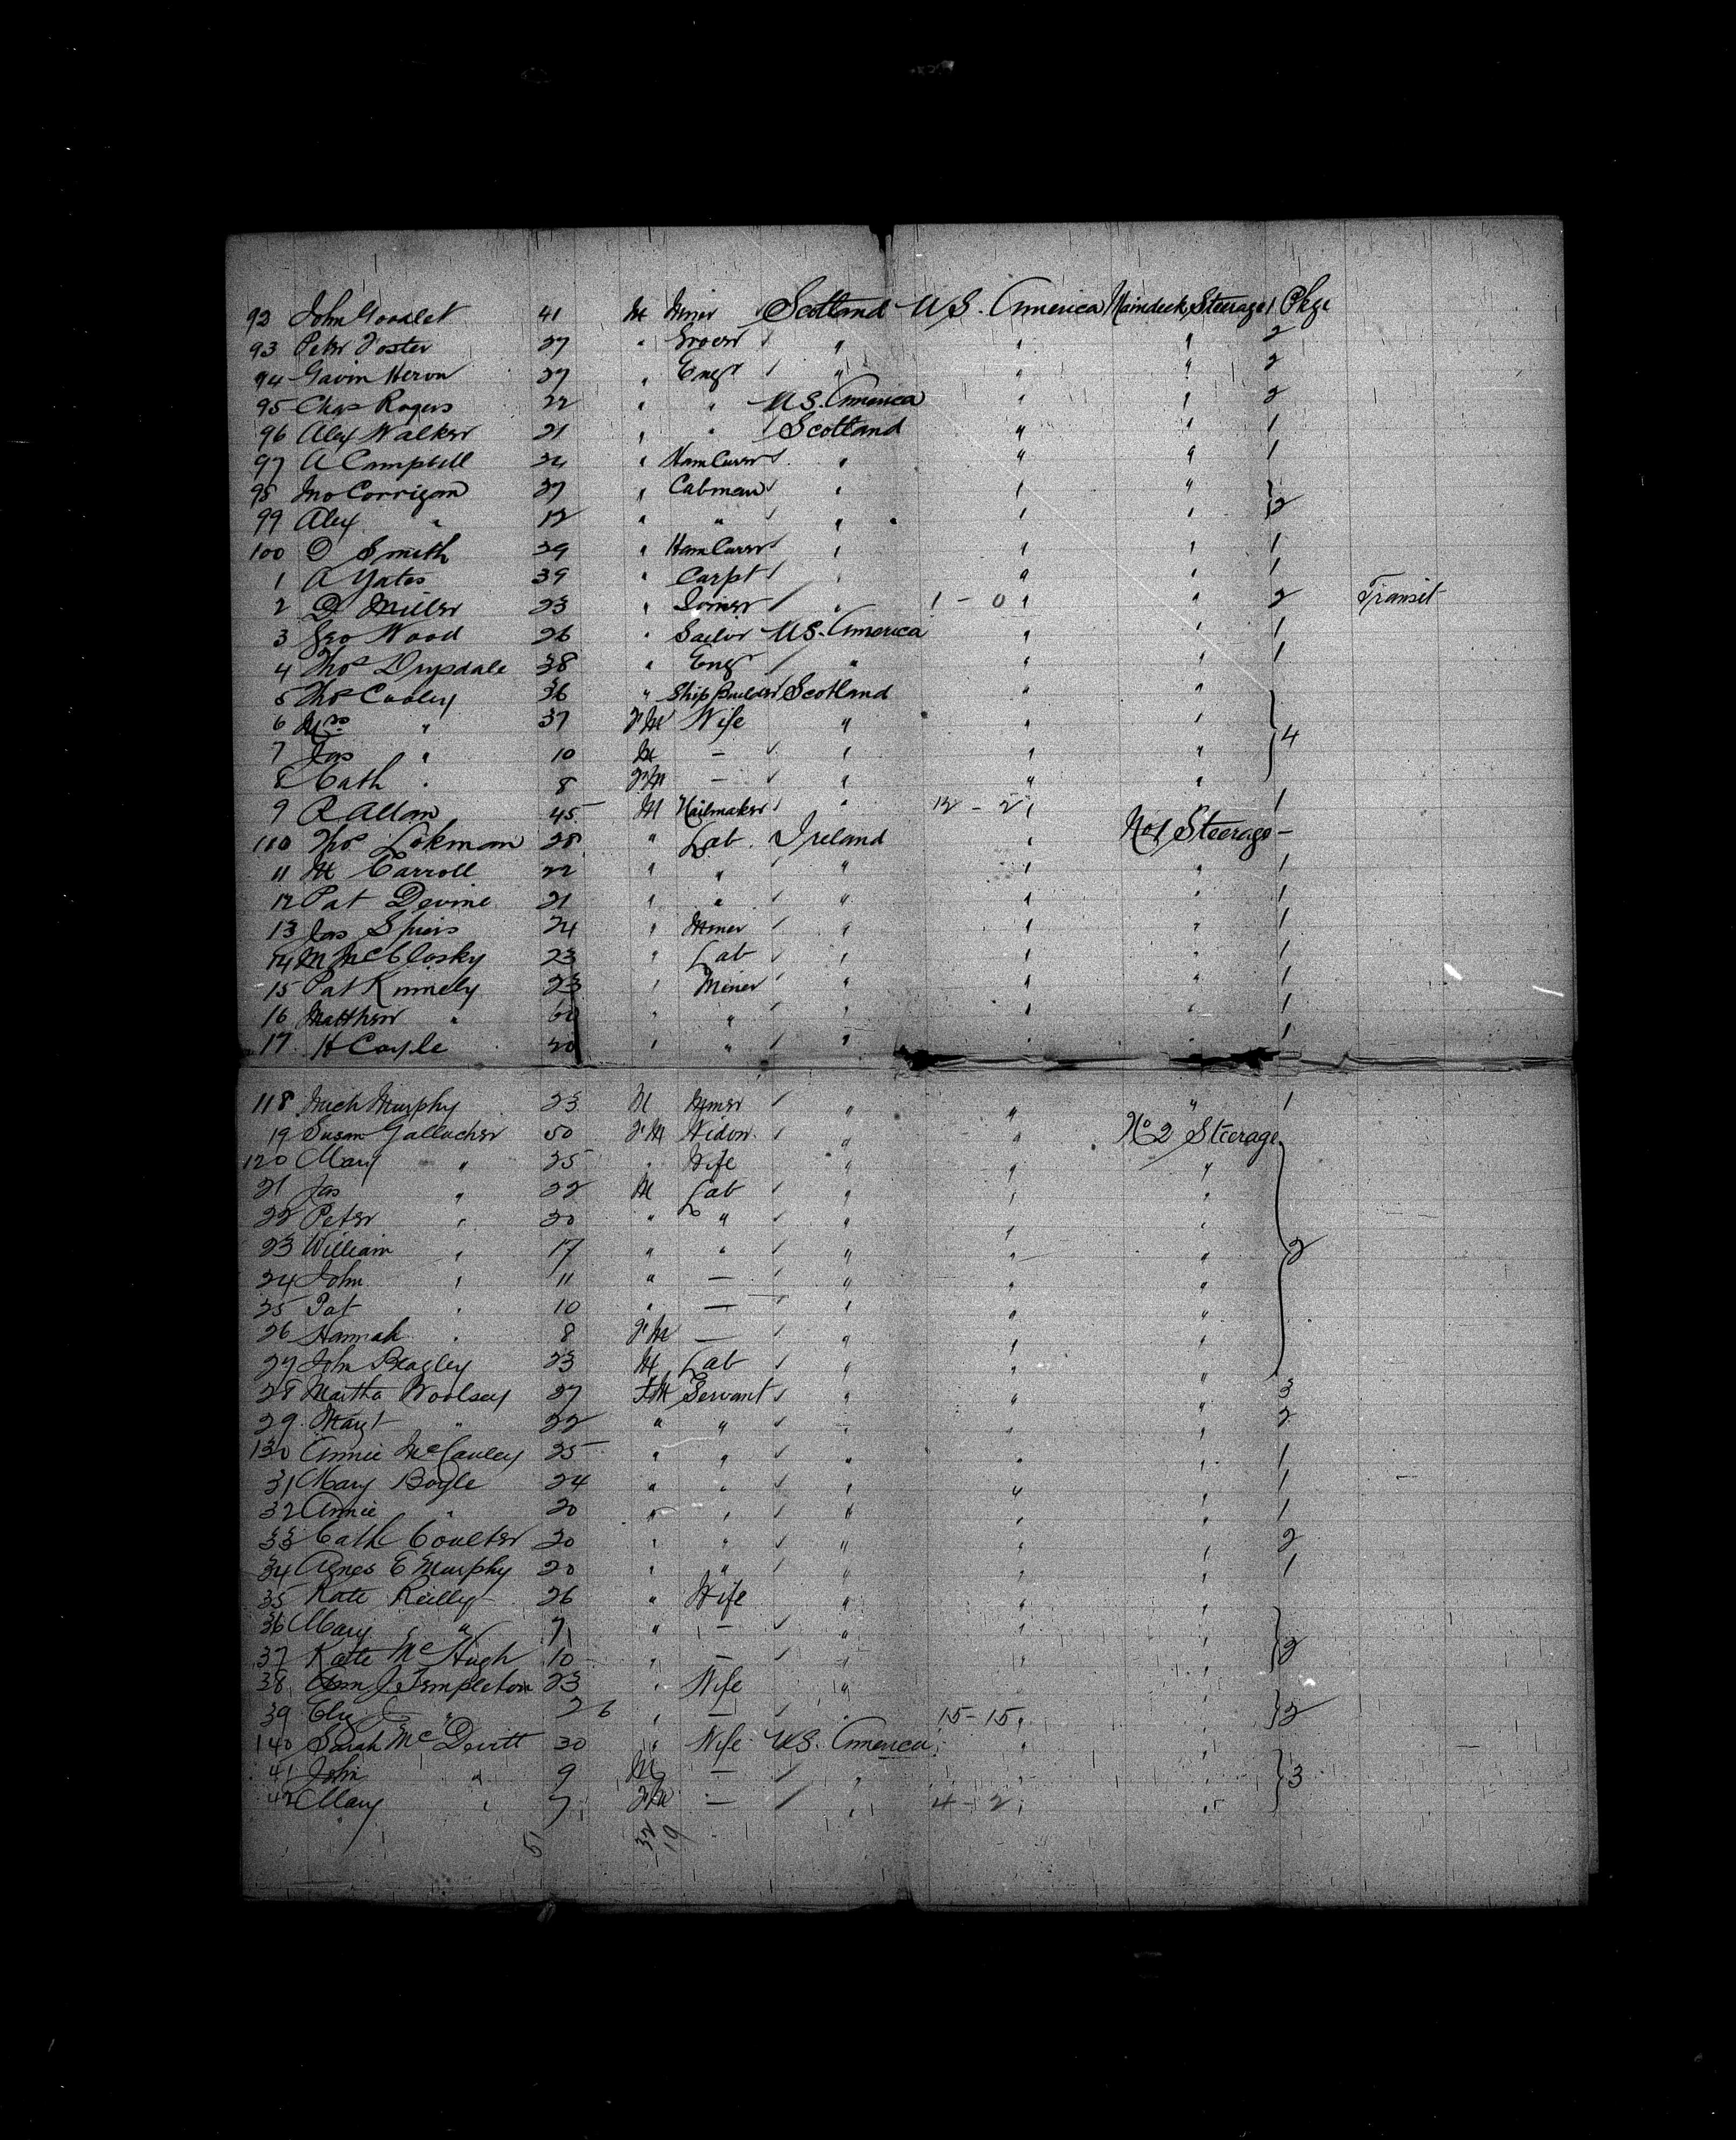 92 John Goodlet 41 M Miner Scotland U.S. America Maindeck Steerage 1 Pkge
93 Peter Foster 27 " Grocer " " " 2
94 Gavin Heron 27 " Engr " " " 2
95 Chas Rogers 22 " " U.S. America " " 2
96 Alex Walker 21 " " Scotland " " 1
97 A Campbell 24 " Ham Curer " " " 1
98 Jno Corrigan 27 " Cabman " " "
99 Alex " 12 " " " " " 2
100 D Smith 29 " Ham Curer " " " 1
1 A Yates 39 " Carpt " " " 1
2 D Miller 23 " Joiner " 1 - 0 " " 2 Transit
3 Geo Wood 26 " Sailor U.S. America " " 1
4 Thos Drysdale 38 " Engr " " " 1
5 Thos Cooley 36 " Ship Builder Scotland " "
6 Mrs " 37 FM Wife " " "
7 Jas " 10 M — " " " 4
8 Cath " 8 FM — " " "
9 R Allan 45 M Nailmaker " 12 - 2 " 1
110 Thos Lokman 28 " Lab. Ireland " No 1 Steerage -
11 M Carroll 22 " " " " " 1
12 Pat Devine 21 " " " " " 1
13 Jas Spiers 24 " Miner " " " 1
14 M McClosky 23 " Lab " " " 1
15 Pat Kinnely 23 " Miner " " " 1
16 Matthew " " " " " " 1
17 H Coyle 20 " " " " " 1
118 Mich Murphy 23 M Miner " " " 1
19 Susan Gallacher 50 FM Widow " " No 2 Steerage
120 Mary " 25 " Wife " " "
21 Jas " 22 M Lab " " "
22 Peter " 20 " " " " "
23 William " 17 " " " " " 2
24 John " 11 " — " " "
25 Pat " 10 " — " " "
26 Hannah " 8 FM — " " "
27 John Beagley 23 M Lab " " "
28 Martha Woolsey 27 FM Servant " " " 3
29 Magt " 22 " " " " " 2
130 Annie McCauley 25 " " " " " 1
31 Mary Boyle 24 " " " " " 1
32 Annie " 20 " " " " " 1
33 Cath Coulter 20 " " " " " 2
34 Agnes E Murphy 20 " " " " " 1
35 Kate Reilly 26 " Wife " " "
36 Mary " 7 " — " " "
37 Kate McHugh 10 " — " " " 2
38 Ann J Templeton 23 " Wife " " "
39 Eliz " 26 " — " 15 - 15 " " 2
140 Sarah McDevitt 30 " Wife U.S. America " "
41 John " 9 M — " " " 3
42 Mary " 7 FM — " 4 - 2 " "
51 32
19